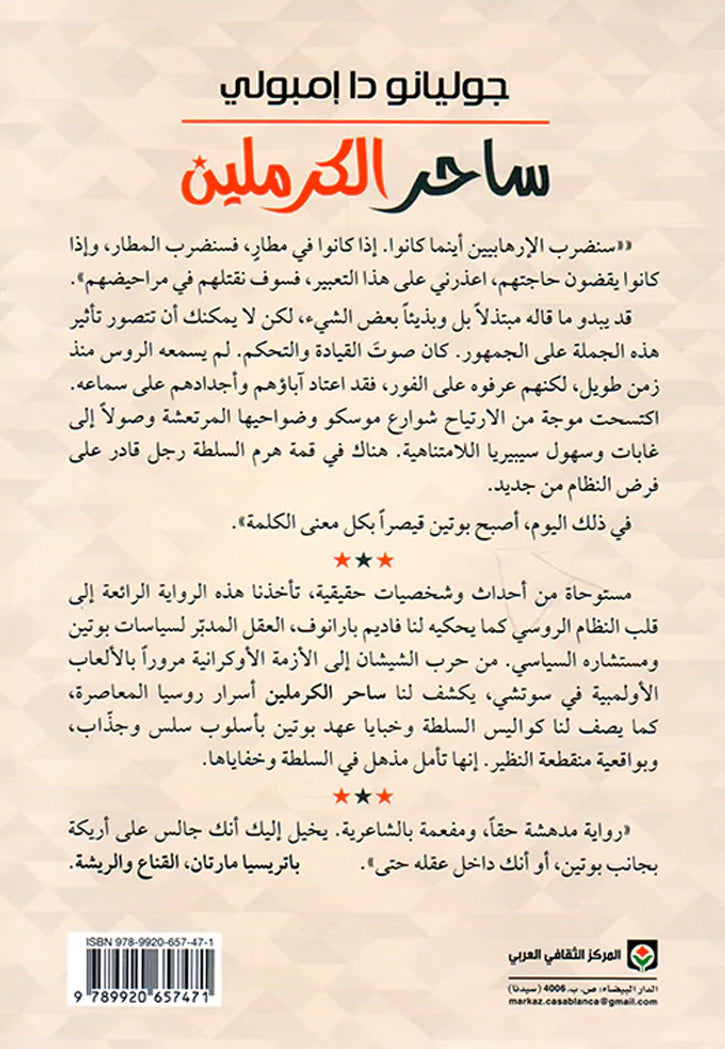 جوليانو دا إمبولي
ساحر الكرملين
«"سنضرب الإرهابيين أينما كانوا. إذا كانوا في مطارٍ، فسنضرب المطار، وإذا
كانوا يقضون حاجتهم، اعذرني على هذا التعبير، فسوف نقتلهم في مراحيضهم".
قد يبدو ما قاله مبتذلاً بل وبذيئاً بعض الشيء، لكن لا يمكنك أن تتصور تأثير
هذه الجملة على الجمهور. كان صوتَ القيادة والتحكم. لم يسمعه الروس منذ
زمن طويل، لكنهم عرفوه على الفور، فقد اعتاد آباؤهم وأجدادهم على سماعه.
اكتسحت موجة من الارتياح شوارع موسكو وضواحيها المرتعشة وصولاً إلى
غابات وسهول سيبيريا اللامتناهية. هناك في قمة هرم السلطة رجل قادر على
فرض النظام من جديد.
في ذلك اليوم، أصبح بوتين قيصراً بكل معنى الكلمة».
★ ★ ★
مستوحاة من أحداث وشخصيات حقيقية، تأخذنا هذه الرواية الرائعة إلى
قلب النظام الروسي كما يحكيه لنا فاديم بارانوف، العقل المدبّر لسياسات بوتين
ومستشاره السياسي. من حرب الشيشان إلى الأزمة الأوكرانية مروراً بالألعاب
الأولمبية في سوتشي، يكشف لنا ساحر الكرملين أسرار روسيا المعاصرة،
كما يصف لنا كواليس السلطة وخبايا عهد بوتين بأسلوب سلس وجذّاب،
وبواقعية منقطعة النظير. إنها تأمل مذهل في السلطة وخفاياها.
★ ★ ★
«رواية مدهشة حقاً، ومفعمة بالشاعرية. يخيل إليك أنك جالس على أريكة
بجانب بوتين، أو أنك داخل عقله حتى». باتريسيا مارتان، القناع والريشة.
المركز الثقافي العربي
الدار البيضاء: ص. ب. 4006 (سيدنا)
markaz.casablanca@gmail.com
ISBN 978-9920-657-47-1
9 789920 657471